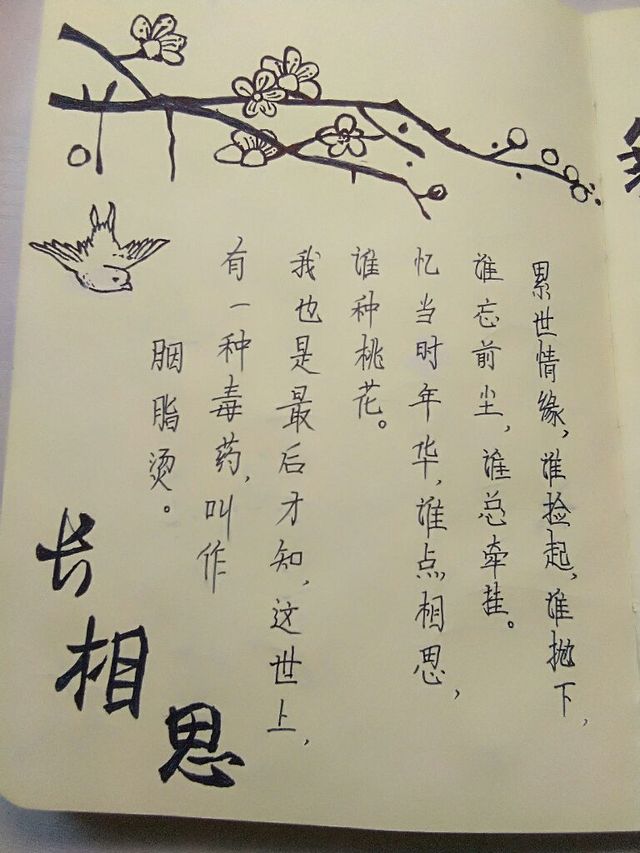 累世情缘，谁捡起，谁抛下，
谁忘前尘，谁总牵挂。
忆当时年华，谁点相思，
谁种桃花。
我也是最后才知，这世上，
有一种毒药，叫作
胭脂烫。
长相思